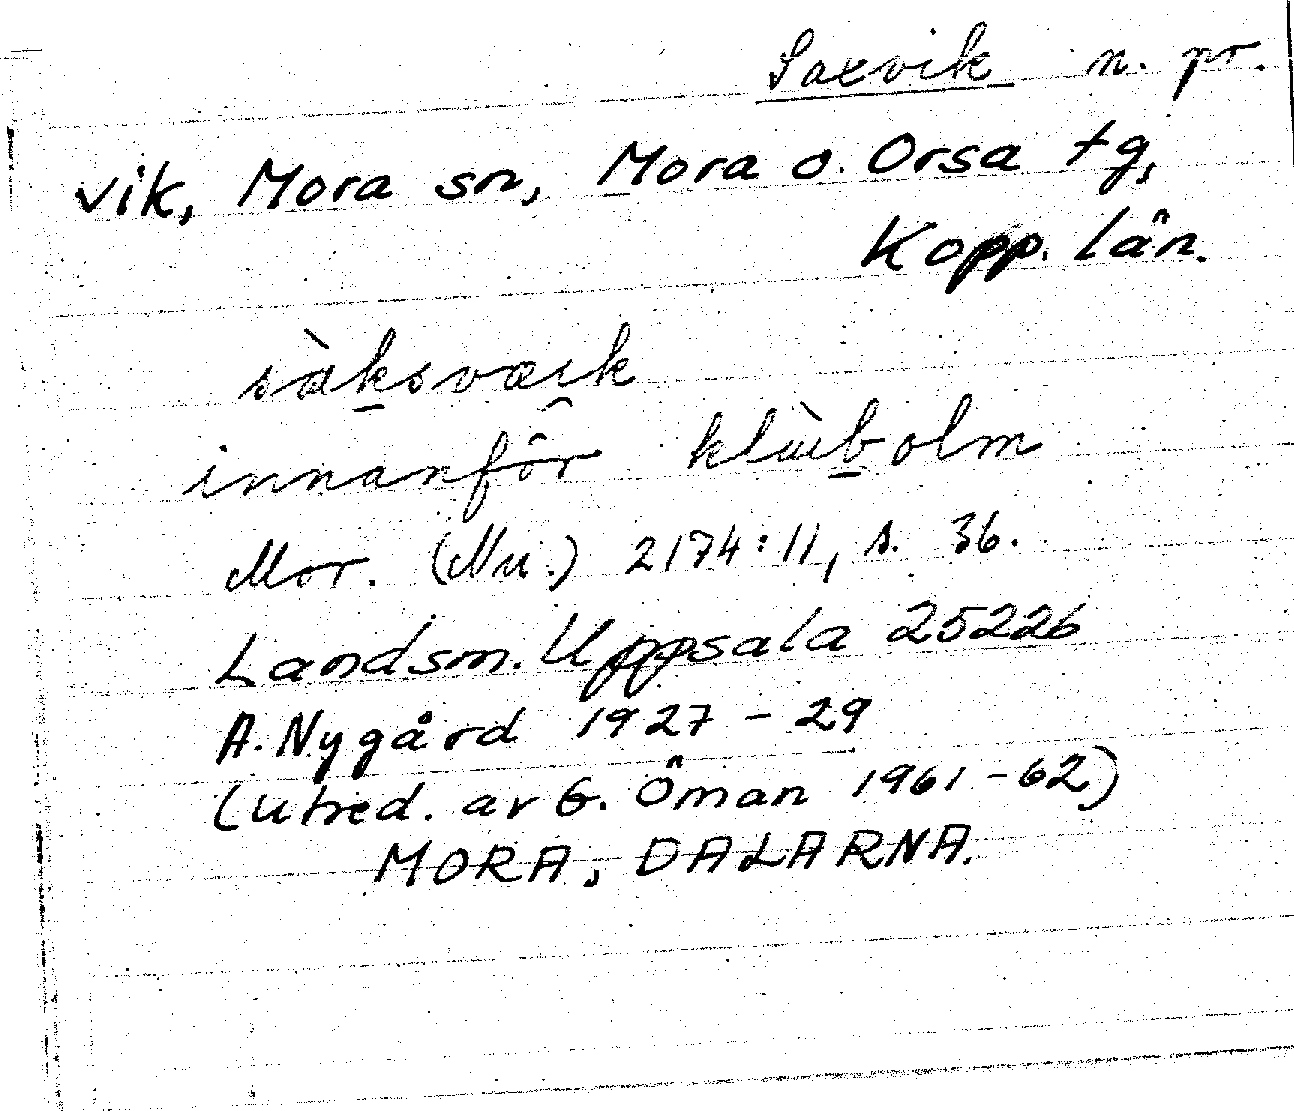 Saxvik n. pr.
vik, Mora sn, Mora o. Orsa tg,
Kopp. län.
sàksvæik
innanför klùibolm
Mor. (Nu.) 2174:11, s. 36.
Landsm. Uppsala 25226
A. Nygård 1927 - 29
(utred. av G. Öman 1961-62)
MORA, DALARNA.